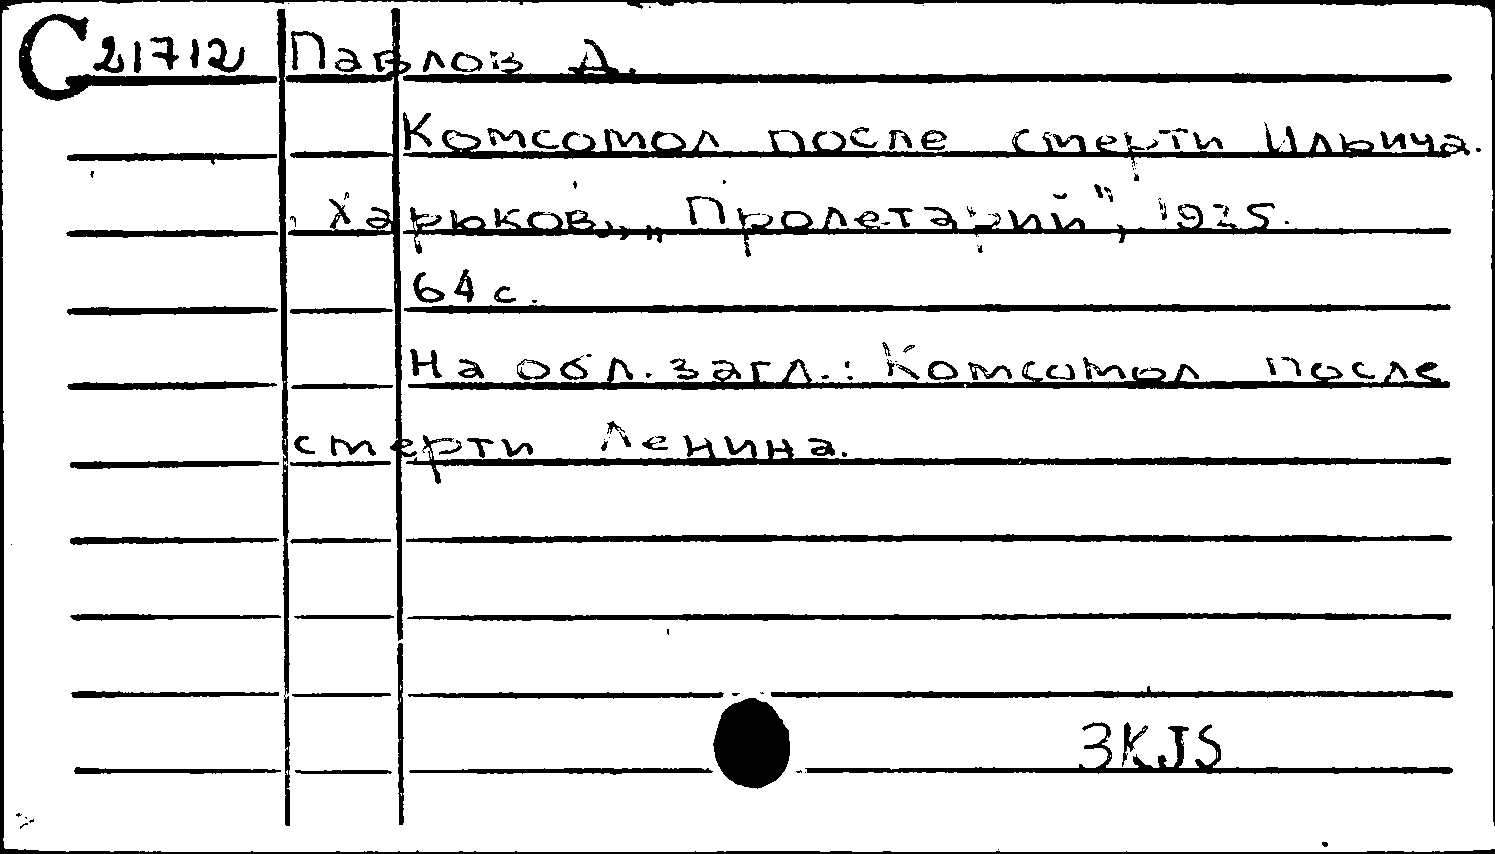 С 21712 Павлов Д.
Комсомол после смерти Ильича.
Харьков, „Пролетарий", 1925.
64 с.
На обл. загл.: Комсомол после
смерти Ленина.
3KJS